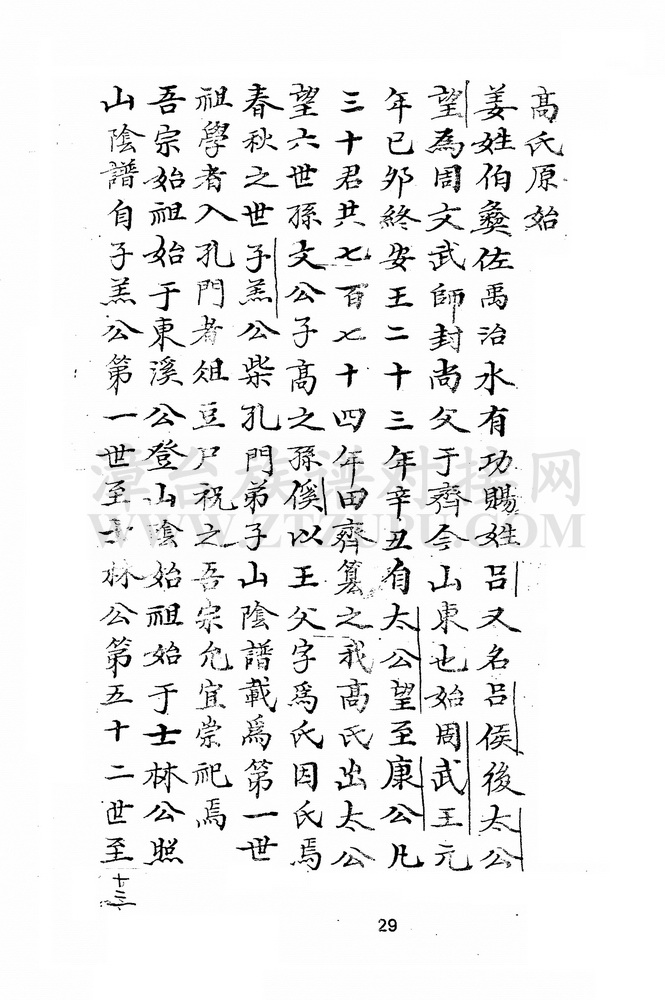 高氏原始
姜姓伯彝佐禹治水有功賜姓吕又名吕侯後太公
望為周文武師封尚父于齊今山東也始周武王元
年己卯終安王二十三年辛丑自太公望至康公凡
三十君共七百七十四年田齊篡之我高氏出太公
望六世孫文公子高之孫傒以王父字爲氏因氏焉
春秋之世子羔公柴孔門弟子山陰譜載爲第一世
祖學者入孔門者俎豆尸祝之吾宗允宜崇祀焉
吾宗始祖始于東溪公登山陰始祖始于士林公照
山陰譜自子羔公第一世至士林公第五十二世至
十三
29
漳台族谱对接网
WWW.ZTZUPU.COM